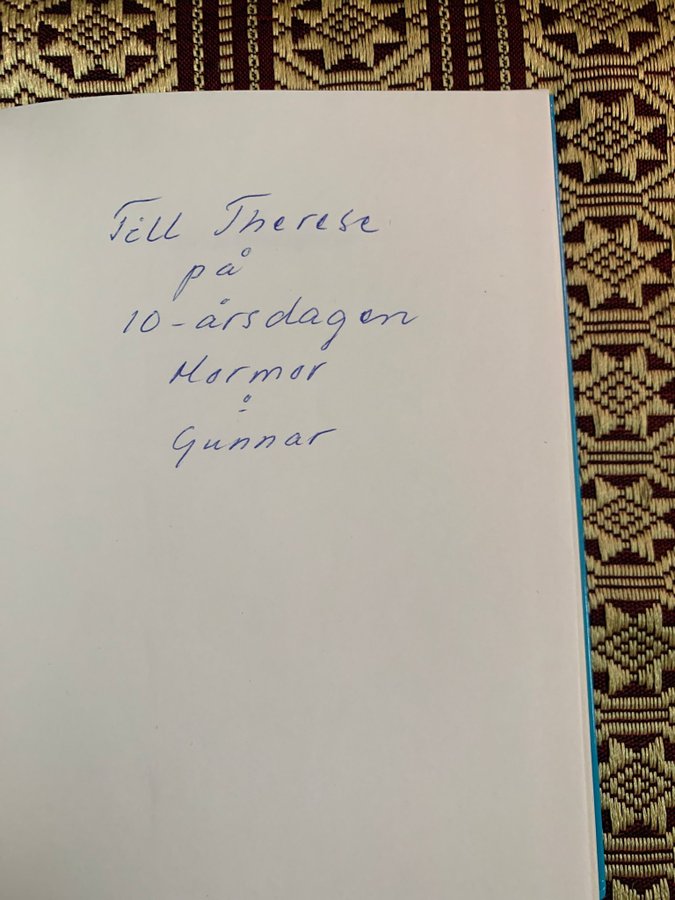 Till Therese
på
10-årsdagen
Mormor
å
Gunnar